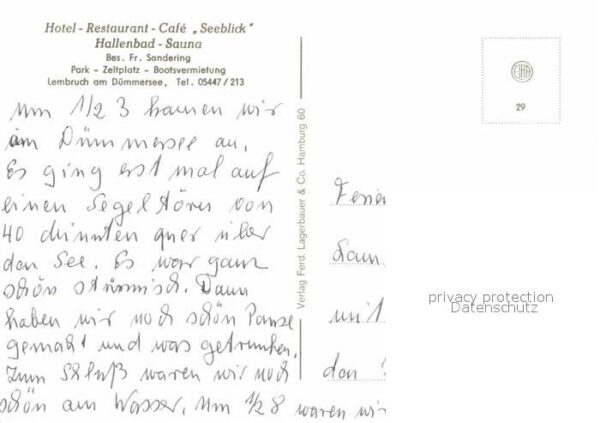 Hotel - Restaurant - Café „Seeblick"
Hallenbad - Sauna
Bes. Fr. Sandering
Park - Zeltplatz - Bootsvermietung
Lembruch am Dümmersee, Tel. 05447/213
Um 1/2 3 kamen wir
am Dümmersee an.
Es ging erst mal auf
einen Segeltörn von
40 Minuten quer über
den See. Es war ganz
schön stürmisch. Dann
haben wir noch schön Pause
gemacht und was getrunken.
Zum Schluß waren wir noch
schön am Wasser. Um 1/2 8 waren wir
Verlag Ferd. Lagerbauer & Co. Hamburg 60
29
Ferien
mit
den
privacy protection
Datenschutz